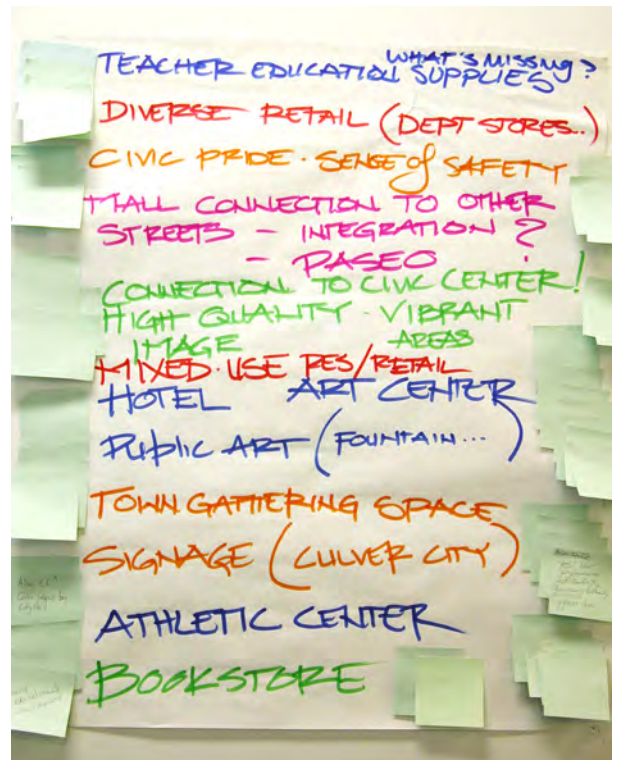 WHAT'S MISSING?
TEACHER EDUCATION SUPPLIES
DIVERSE RETAIL (DEPT STORES..)
CIVIC PRIDE · SENSE of SAFETY
MALL CONNECTION TO OTHER
STREETS - INTEGRATION ?
- PASEO
CONNECTION TO CIVIC CENTER!
HIGH QUALITY · VIBRANT
IMAGE AREAS
MIXED·USE RES/RETAIL
HOTEL ART CENTER
Public ART (FOUNTAIN...)
TOWN GATHERING SPACE
SIGNAGE (CULVER CITY)
ATHLETIC CENTER
BOOKSTORE